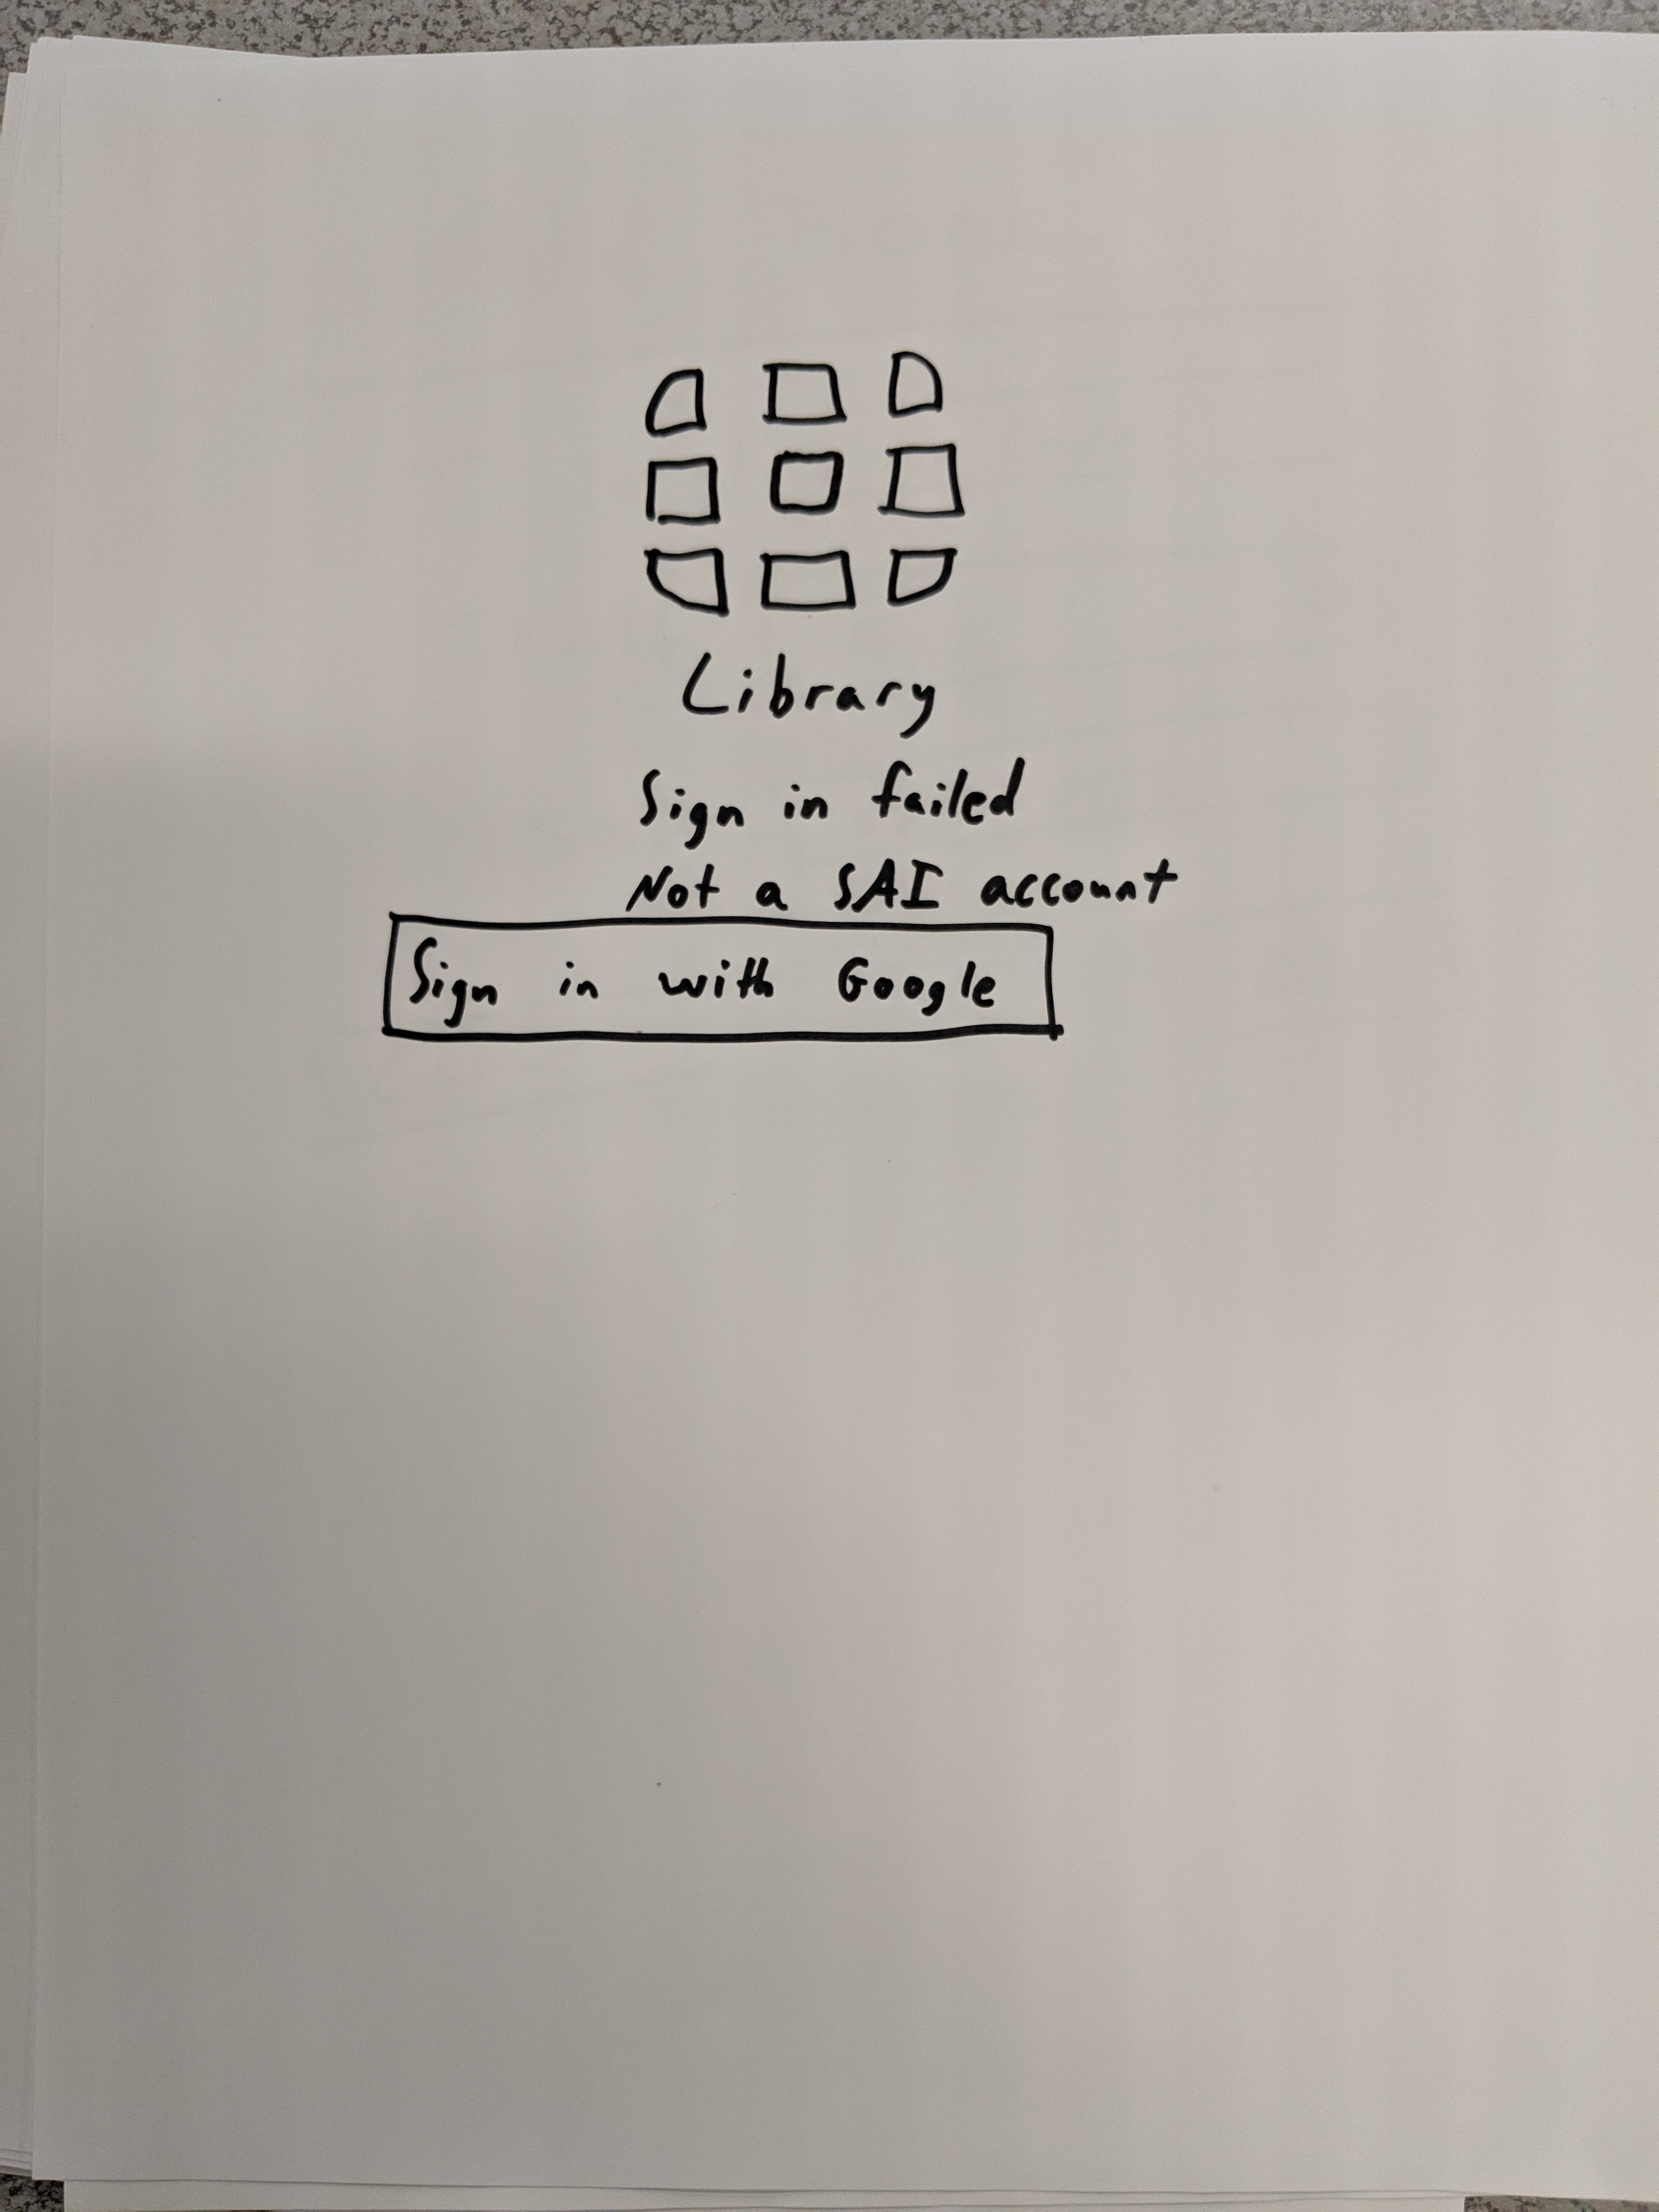 Library
Sign in failed
Not a SAI account
Sign in with Google